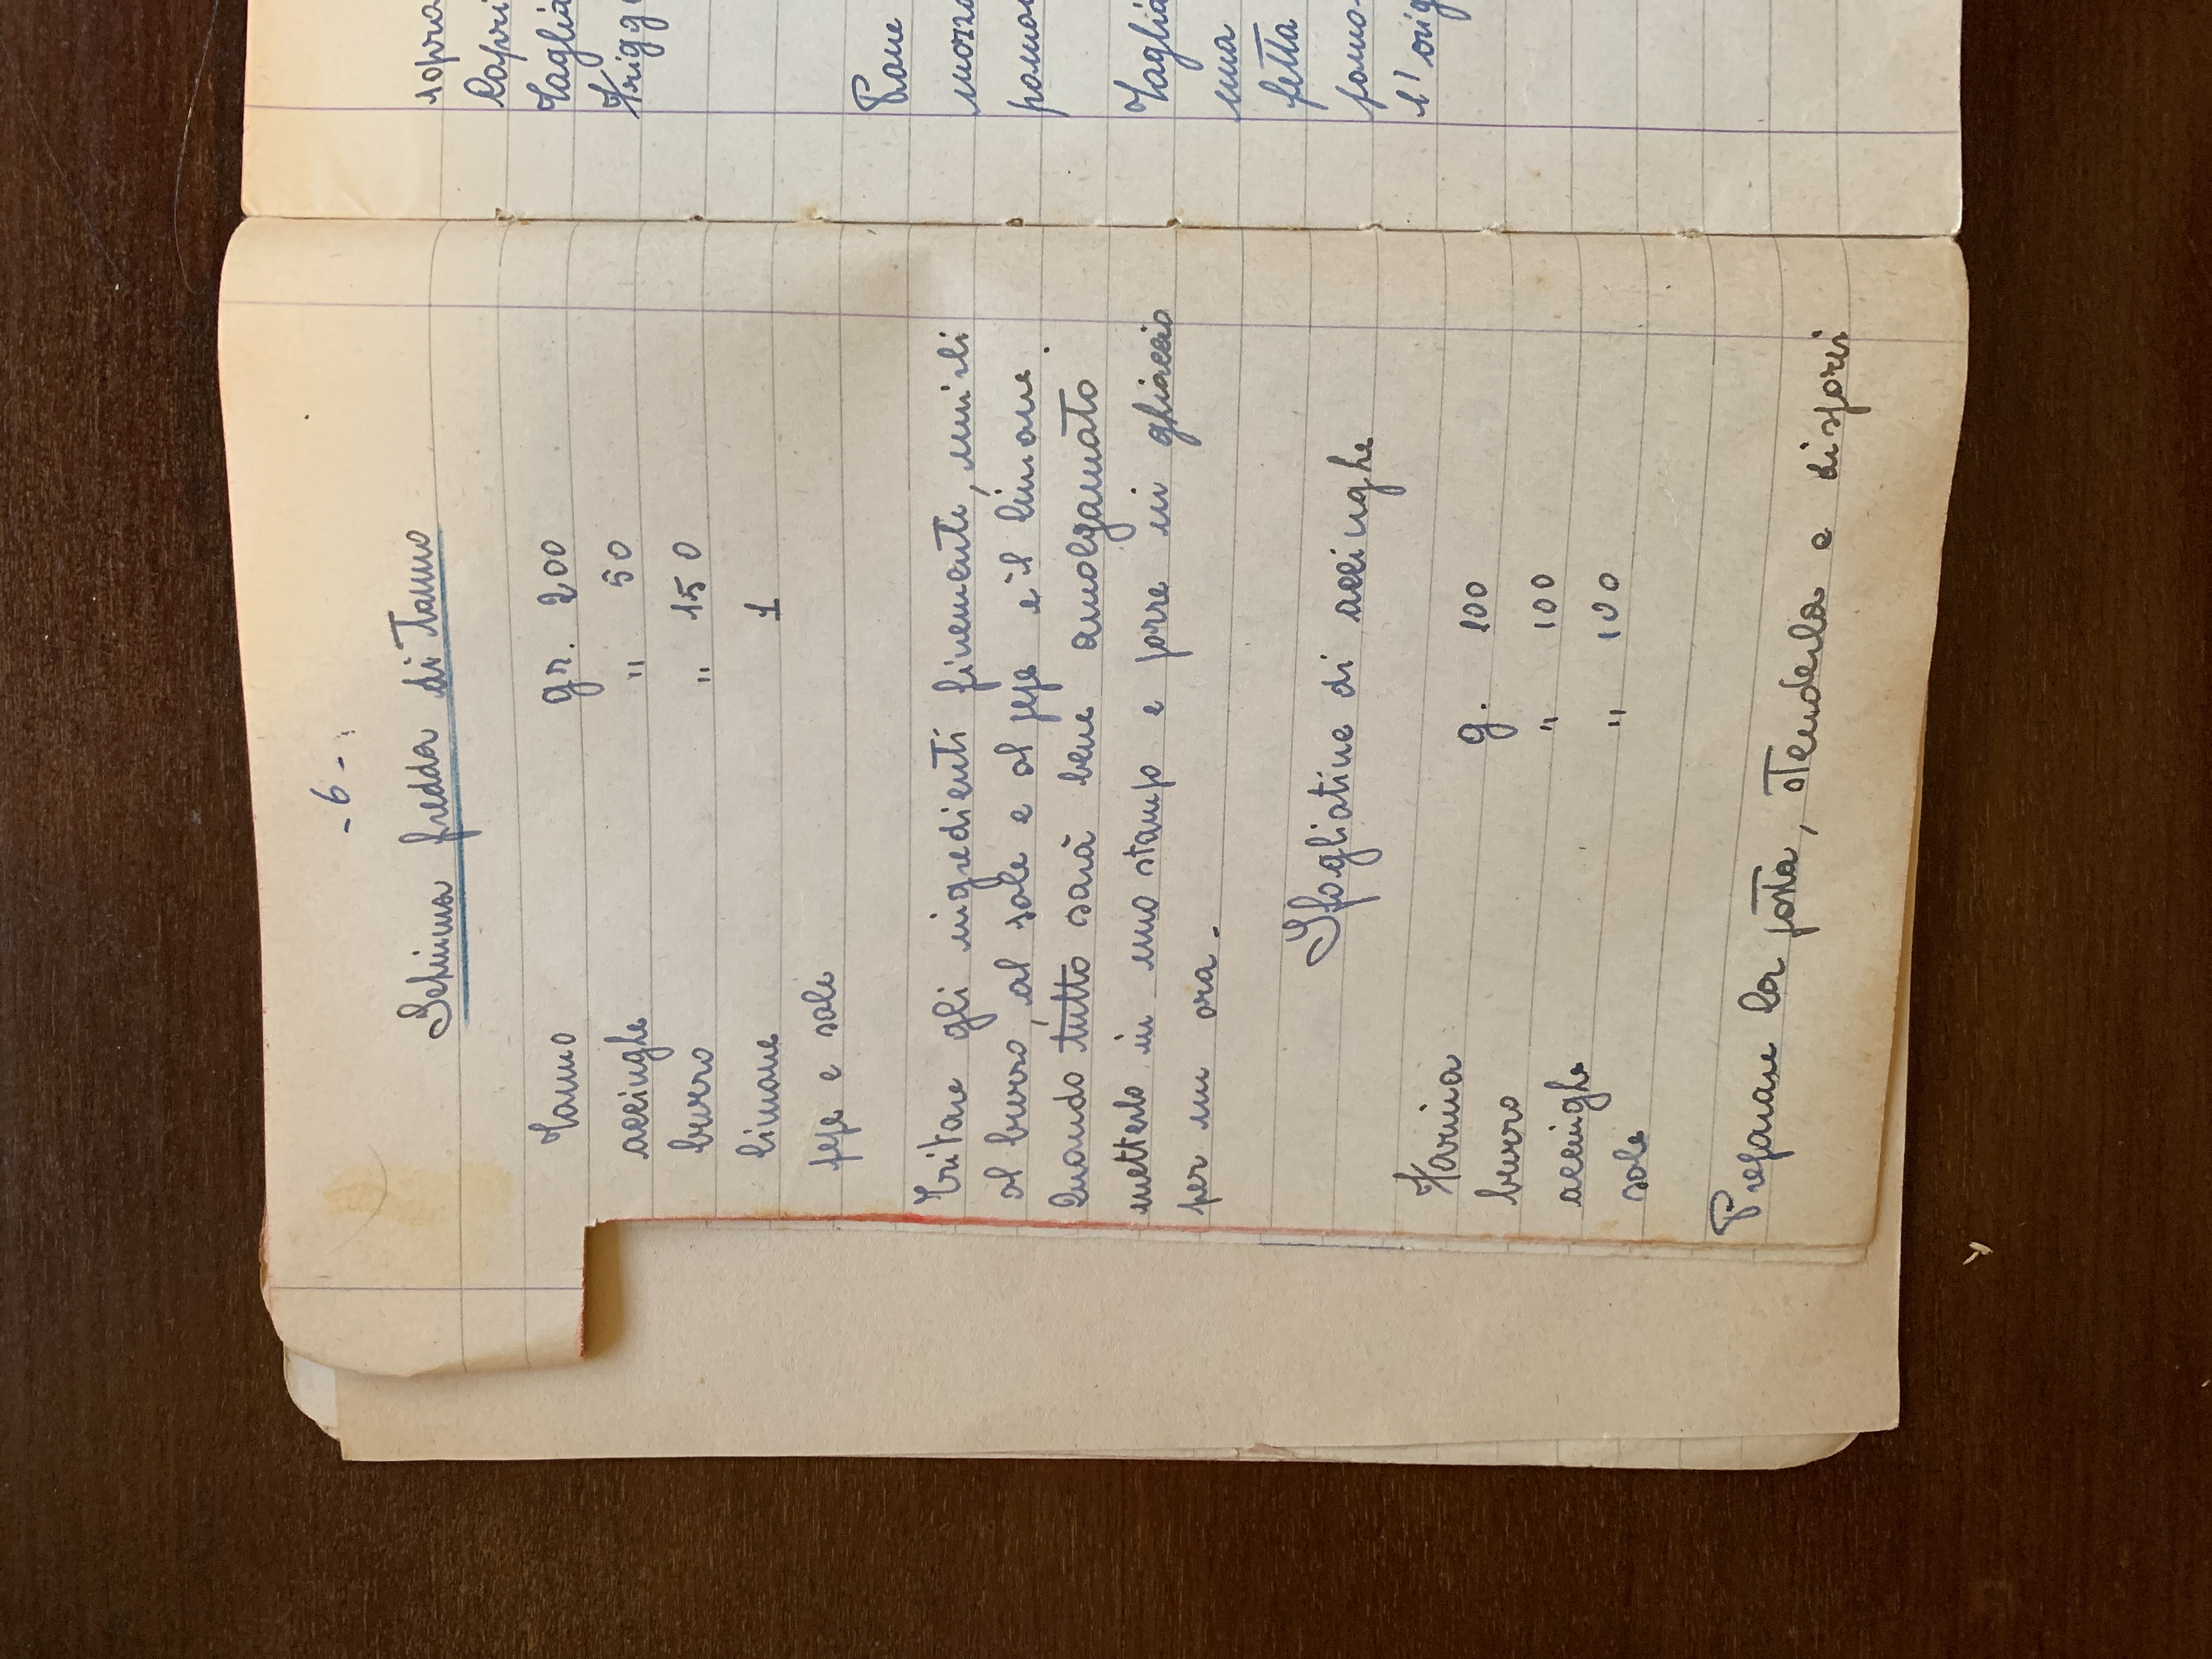 - 6 -
Schiuma fredda di Tonno
Tonno gr. 200
acciughe " 50
burro " 150
limone 1
pepe e sale
Tritare gli ingredienti finemente, unirli
al burro, al sale e al pepe e il limone.
Quando tutto sarà bene amalgamato
metterlo in uno stampo e porre in ghiaccio
per un ora -
Sfogliatine di acciughe
Farina g. 100
burro " 100
acciughe " 100
sale
Preparare la pasta, stenderla e disporvi
sopra
Capri
Taglia
Frigg
Pane
mozza
pomo
Taglia
una
fetta
pomo-
l'orig